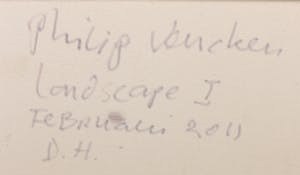 Philip Vencken
Landscape I
FeBRuaRi 2011
D.H.